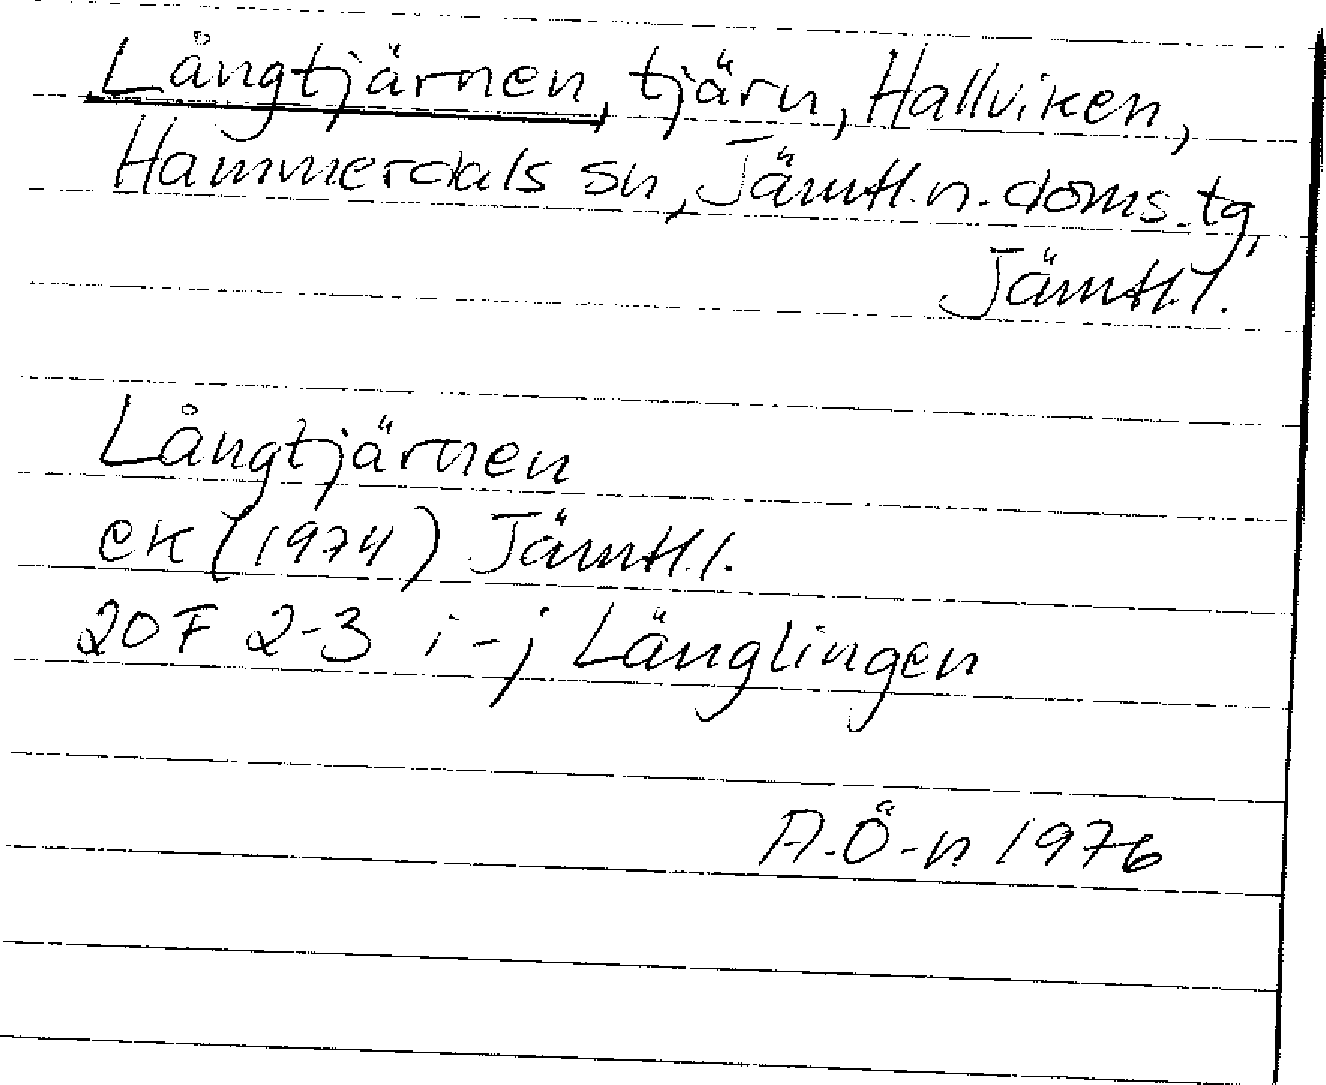 Långtjärnen, tjärn, Hallviken,
Hammerdals sn, Jämtl. n. doms. tg,
Jämtl. l.
Långtjärnen
ek (1974) Jämtl. l.
20F 2-3 i-j Länglingen
A. Ö-n 1976